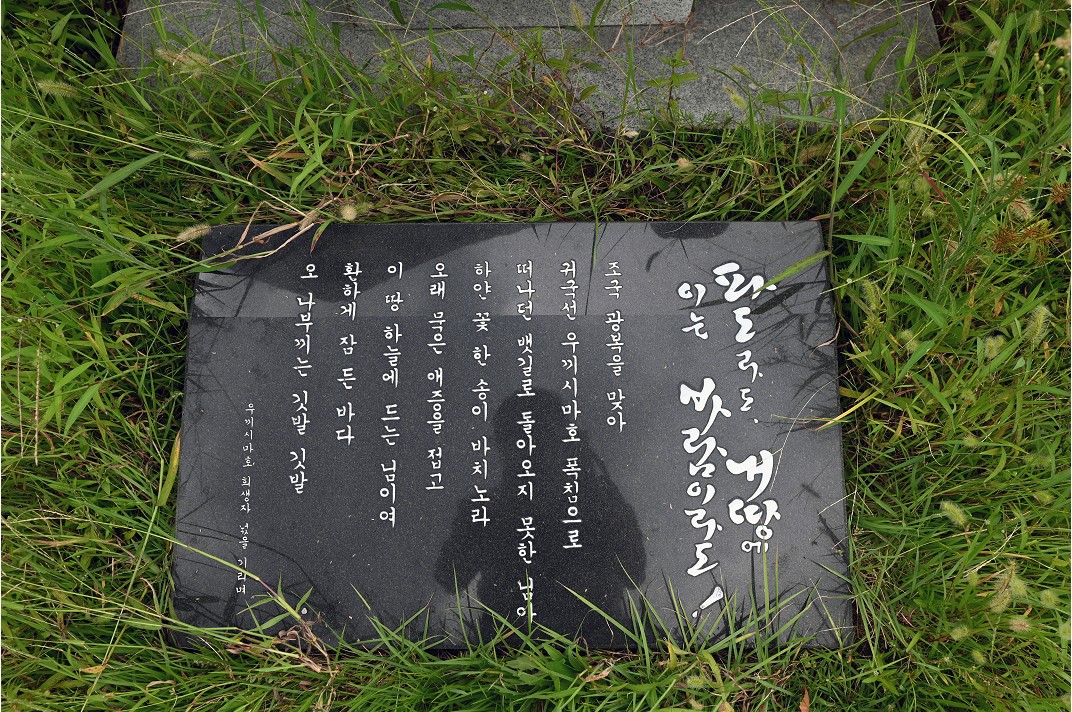 파도로도 내 땅에
이는 바람이로도!
조국 광복을 맞아
귀국선 우끼시마호 폭침으로
떠나던 뱃길로 돌아오지 못한 님아
하얀 꽃 한 송이 바치노라
오래 묵은 애증을 접고
이 땅 하늘에 드는 님이여
환하게 잠 든 바다
오 나부끼는 깃발 깃발
우끼시마호 희생자 넋을 기리며